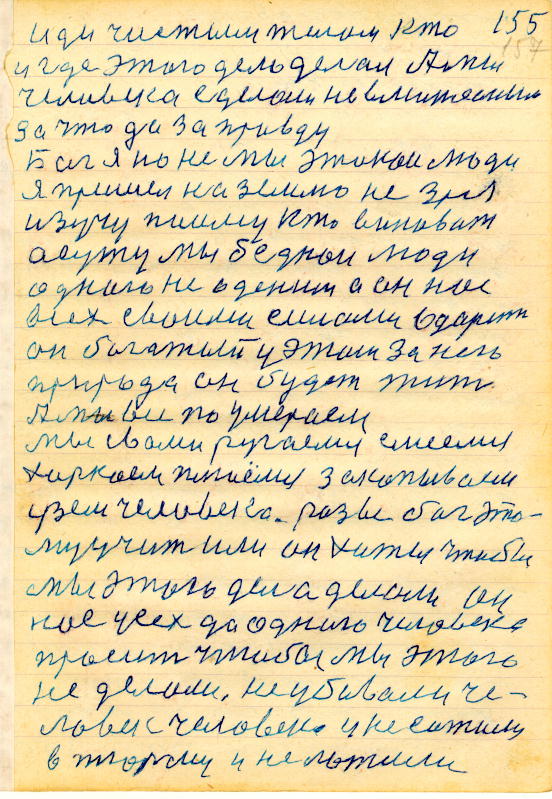 155
157
иди чистым телом кто
и где этого дель делал А мы
человека сделали невлиятельным
за что да за правду
Бог я по не мы этокои люди
я пришел на землю не зря
изучу почему кто виноват
а сужу мы бедною люди
одного не оденим а он нас
всех своими силами одарит
он богатый у этом за него
природа он будет жить
А мы все поумераем
мы с вами ругаемся смеемся
харкаем плюемся закопываем
узем человека. разве бог это-
му учит или он хотел чтобы
мы этого дела делали он
нас усех до одного человека
просит чтобы мы этого
не делали, не убивали че-
ловек человека и не сажали
в тюрьму и не ложили